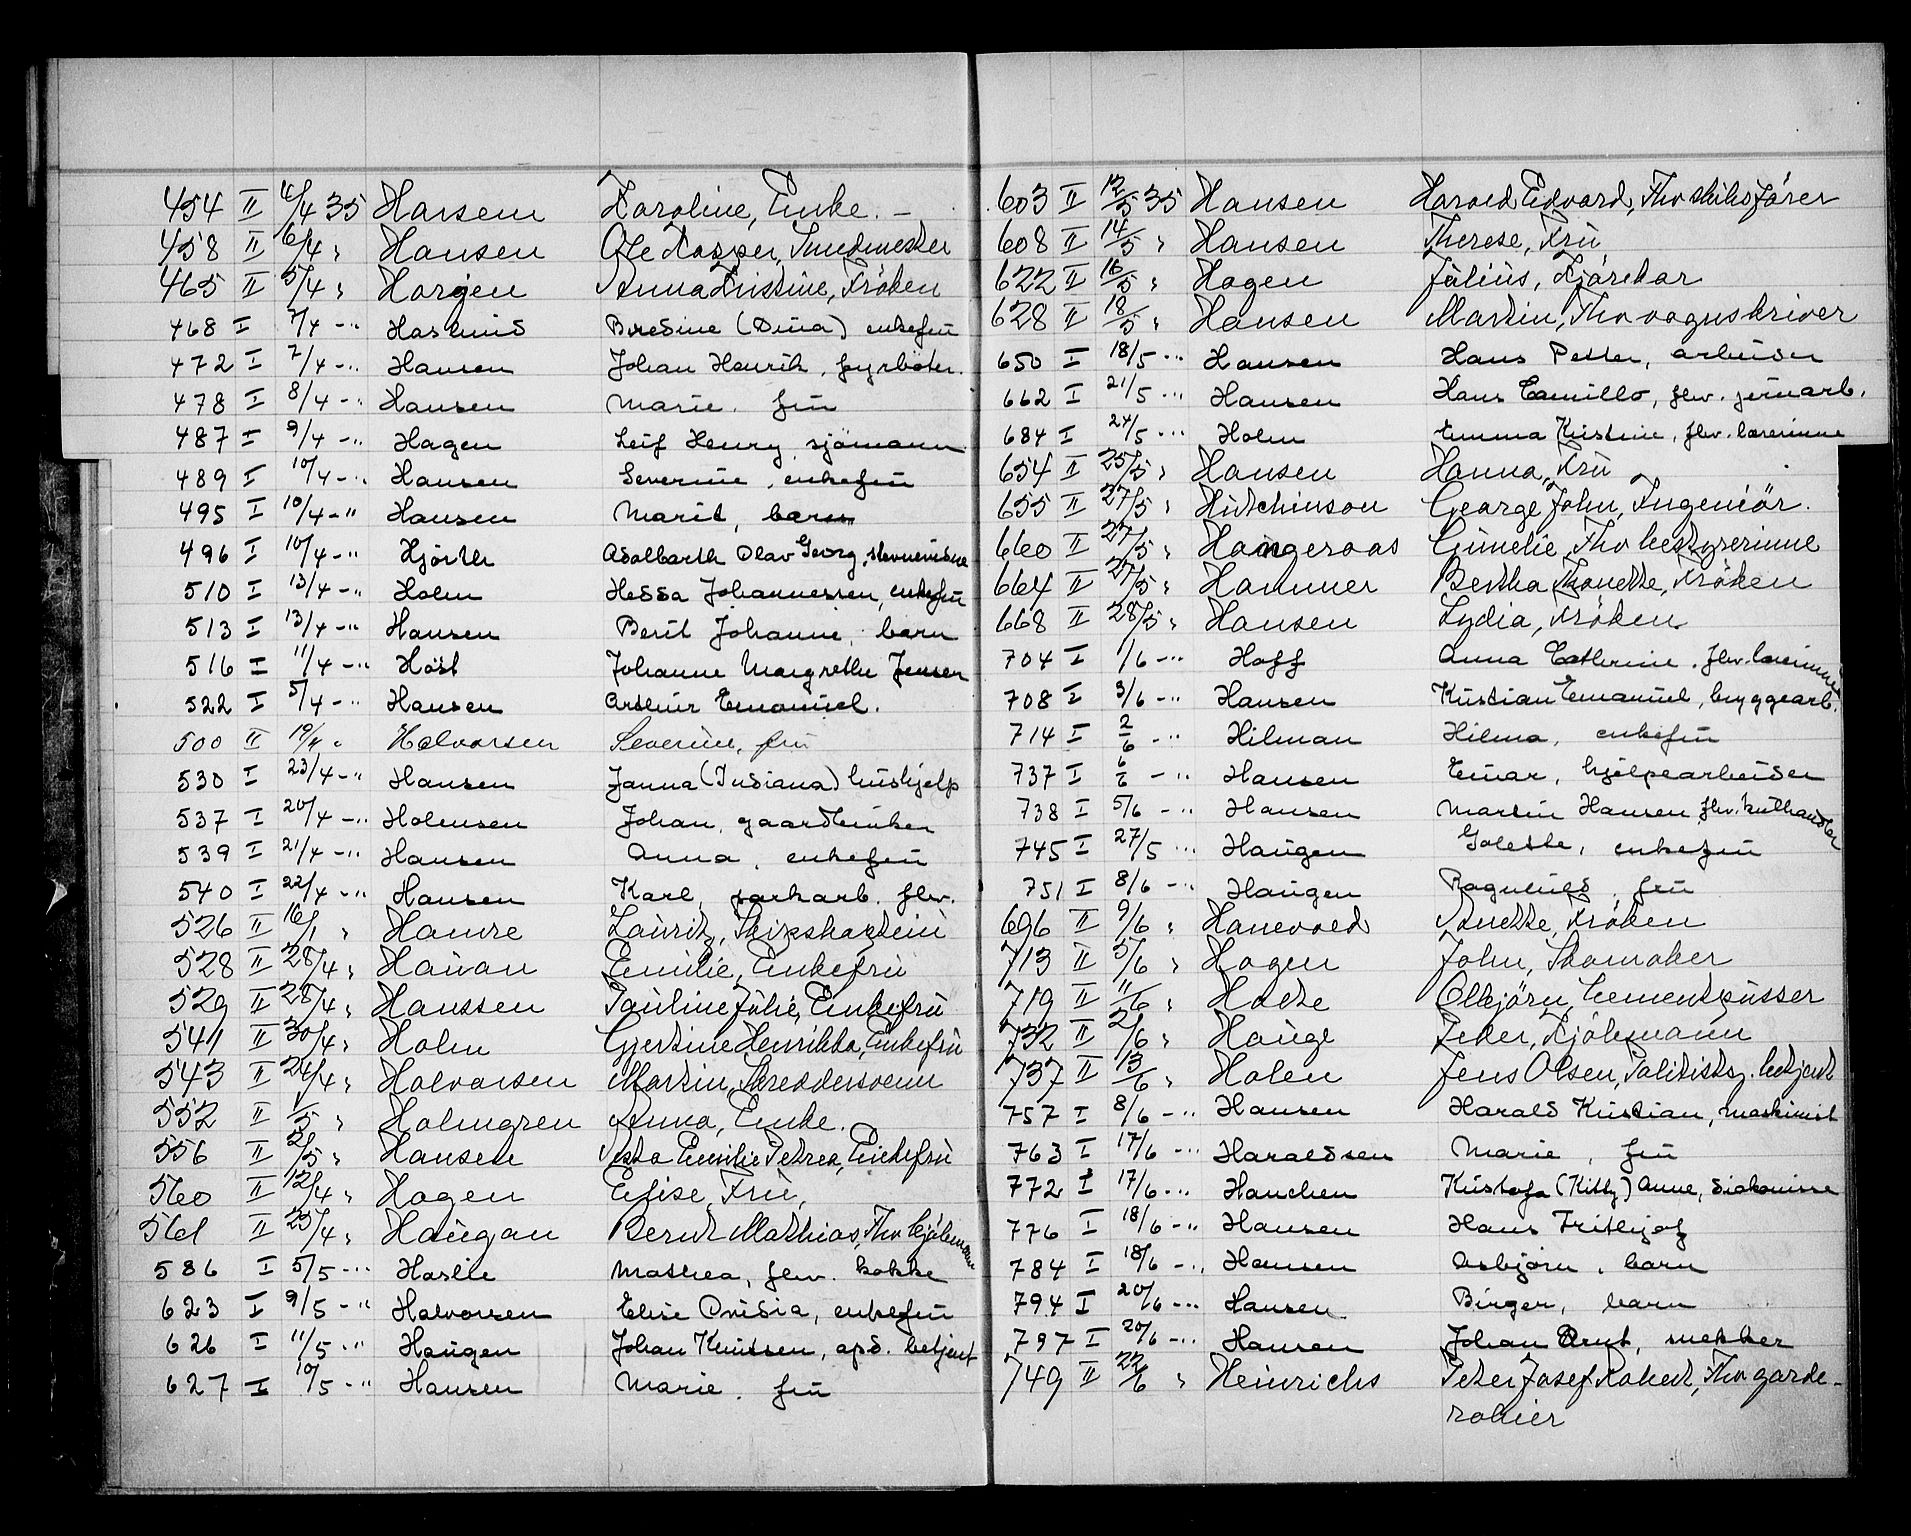 454 II 4/4 35 Hansen Karoline, Enke. –
458 II 6/4 " Hansen Ole Kasper, Smedmester
465 II 5/4 " Horgen Anna Kristine, Frøken
468 I 7/4 -"- Haslund Bredine (Dina) enkefru
472 I 7/4 -"- Hansen Johan Henrik, fyrbøter.
478 I 8/4 -"- Hansen Marie. fru
487 I 9/4 -"- Hagen Leif Henry, sjömann
489 I 10/4 -"- Hansen Severine, enkefru
495 I 10/4 -"- Hansen Marit, barn
496 I 10/4 -"- Hjörth Adalbarth Olav Georg,
510 I 13/4 -"- Holm Hedda Johannessen, enkefru
513 I 13/4 -"- Hansen Beril Johanne, barn
516 I 11/4 -"- Höst Johanne Margrethe Jensen
522 I 5/4 -"- Hansen Arthur Emanuel.
500 II 19/4 " Halvorsen Severine, fru
530 I 23/4 -"- Hansen Janna (Indiana) hushjelp
537 I 20/4 -"- Holmsen Johan, gaardbruker
539 I 21/4 -"- Hansen Anna, enkefru
540 I 22/4 -"- Hansen Karl, parkarb. fhv.
526 II 16/1 " Hamre Lauritz, Skipskaptein
528 II 28/4 " Hauan Emilie, Enkefru
529 II 28/4 " Hanssen Pauline Julie, Enkefru
541 II 30/4 " Holm Gjertine Henrikka, Enkefru
543 II 24/4 " Halvorsen Martin, Skreddersvenn
552 II 1/5 " Holmgren Anna, Enke.
556 II 2/5 " Hansen Asta Emilie Petrea, Enkefru
560 II 12/4 " Hagen Elise, Fru,
561 II 25/4 " Haugan Bernt Mathias, Fhv kjölemann
586 I 5/5 -"- Haslie Mathea, fhv. kokke
623 I 9/5 -"- Halvorsen Elise Ovidia, enkefru
626 I 11/5 -"- Haugen Johan Knutsen, opd. betjent
627 I 10/5 -"- Hansen Marie. fru
603 II 12/5 35 Hansen Harald Edvard, Fhv skibsfører
608 II 14/5 " Hansen Therese, Fru
622 II 16/5 " Hagen Julius, Kjørekar
628 II 18/5 " Hansen Martin, Fhv vognskriver
650 I 18/5 -"- Hansen Hans Petter, arbeider
662 I 21/5 -"- Hansen Hans Camillo, fhv. jernarb.
684 I 24/5 -"- Holm Emma Kristine, fhv. lærerinne
654 II 25/5 " Hansen Hanna, Fru
655 II 27/5 " Hutchinson George John, Ingeniør.
660 II 27/5 " Haugeraas Gunelie, Fhv bestyrerinne
664 II 27/5 " Hammer Bertha Thonette, Frøken
668 II 28/5 " Hansen Lydia, Frøken
704 I 1/6 -"- Hoff Anna Cathrine. fhv. lærerinne
708 I 3/6 -"- Hansen Kristian Emanuel, bryggearb.
714 I 2/6 -"- Hilman Hilma, enkefru
737 I 6/6 -"- Hansen Einar, hjelpearbeider
738 I 5/6 -"- Hansen Martin Hansen fhv. kulhandler
745 I 27/5 -"- Haugen Golette, enkefru
751 I 8/6 -"- Haugen Ragnhild, fru
696 II 9/6 " Hanevold Anette, Frøken
713 II 5/6 " Hagen John, Skomaker
719 II 11/6 " Holte Olbjörn, Cementpusser
732 II 2/6 " Hauge Peder, Kjölemann
737 II 13/6 " Holen Jens Olsen, Politistg. betjent
757 I 8/6 -"- Hansen Harald Kristian, maskinist
763 I 17/6 -"- Haraldsen Marie, fru
772 I 17/6 -"- Hanchen Kristofa (Kitty) Anne, diakonisse
776 I 18/6 -"- Hansen Hans Frithjof
784 I 18/6 -"- Hansen Asbjörn, barn
794 I 20/6 -"- Hansen Birger, barn
797 I 20/6 -"- Hansen Johan Arnt, snekker
749 II 22/6 " Heinrichs Peter Josef Robert, Fhv garde-
robier